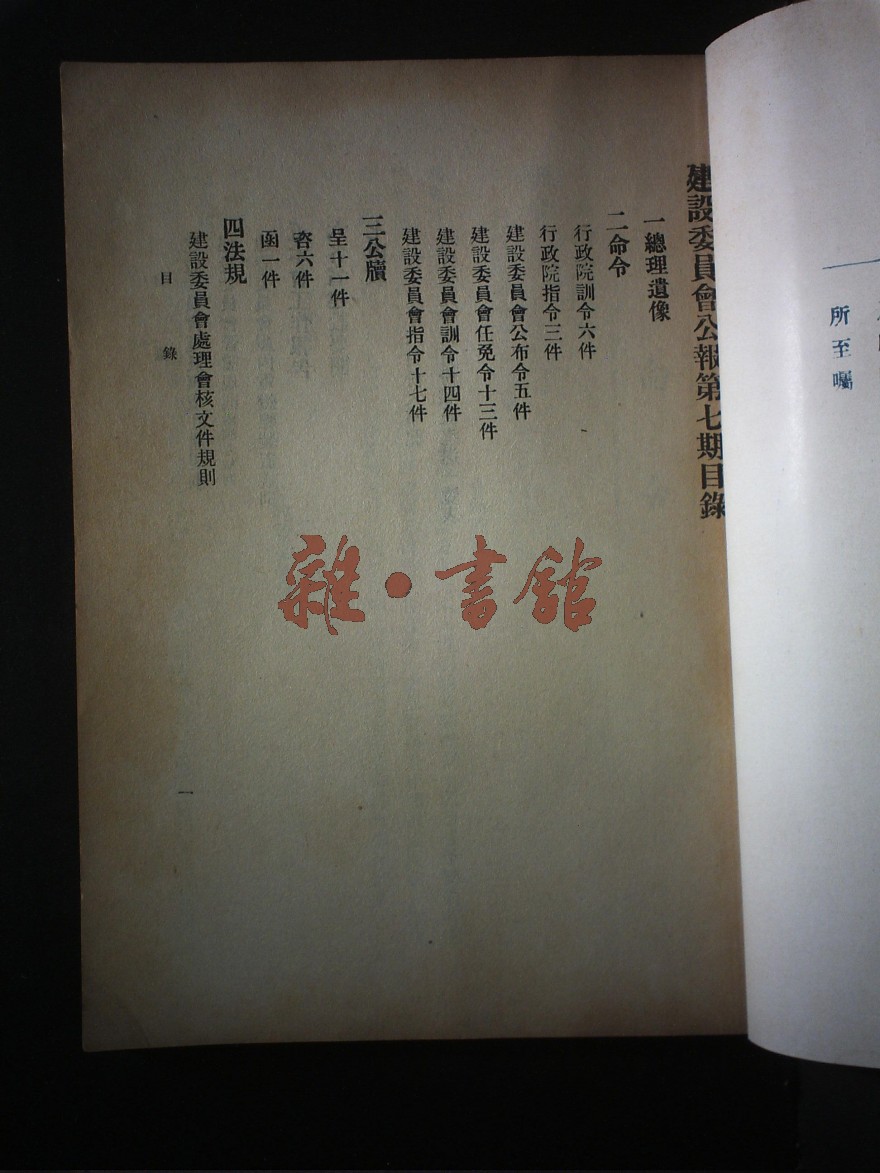 所至囑
建設委員會公報第七期目錄
一總理遺像
二命令
行政院訓令六件
行政院指令三件
建設委員會公布令五件
建設委員會任免令十三件
建設委員會訓令十四件
建設委員會指令十七件
三公牘
呈十一件
咨六件
函一件
四法規
建設委員會處理會核文件規則
目錄
一
雜·書館